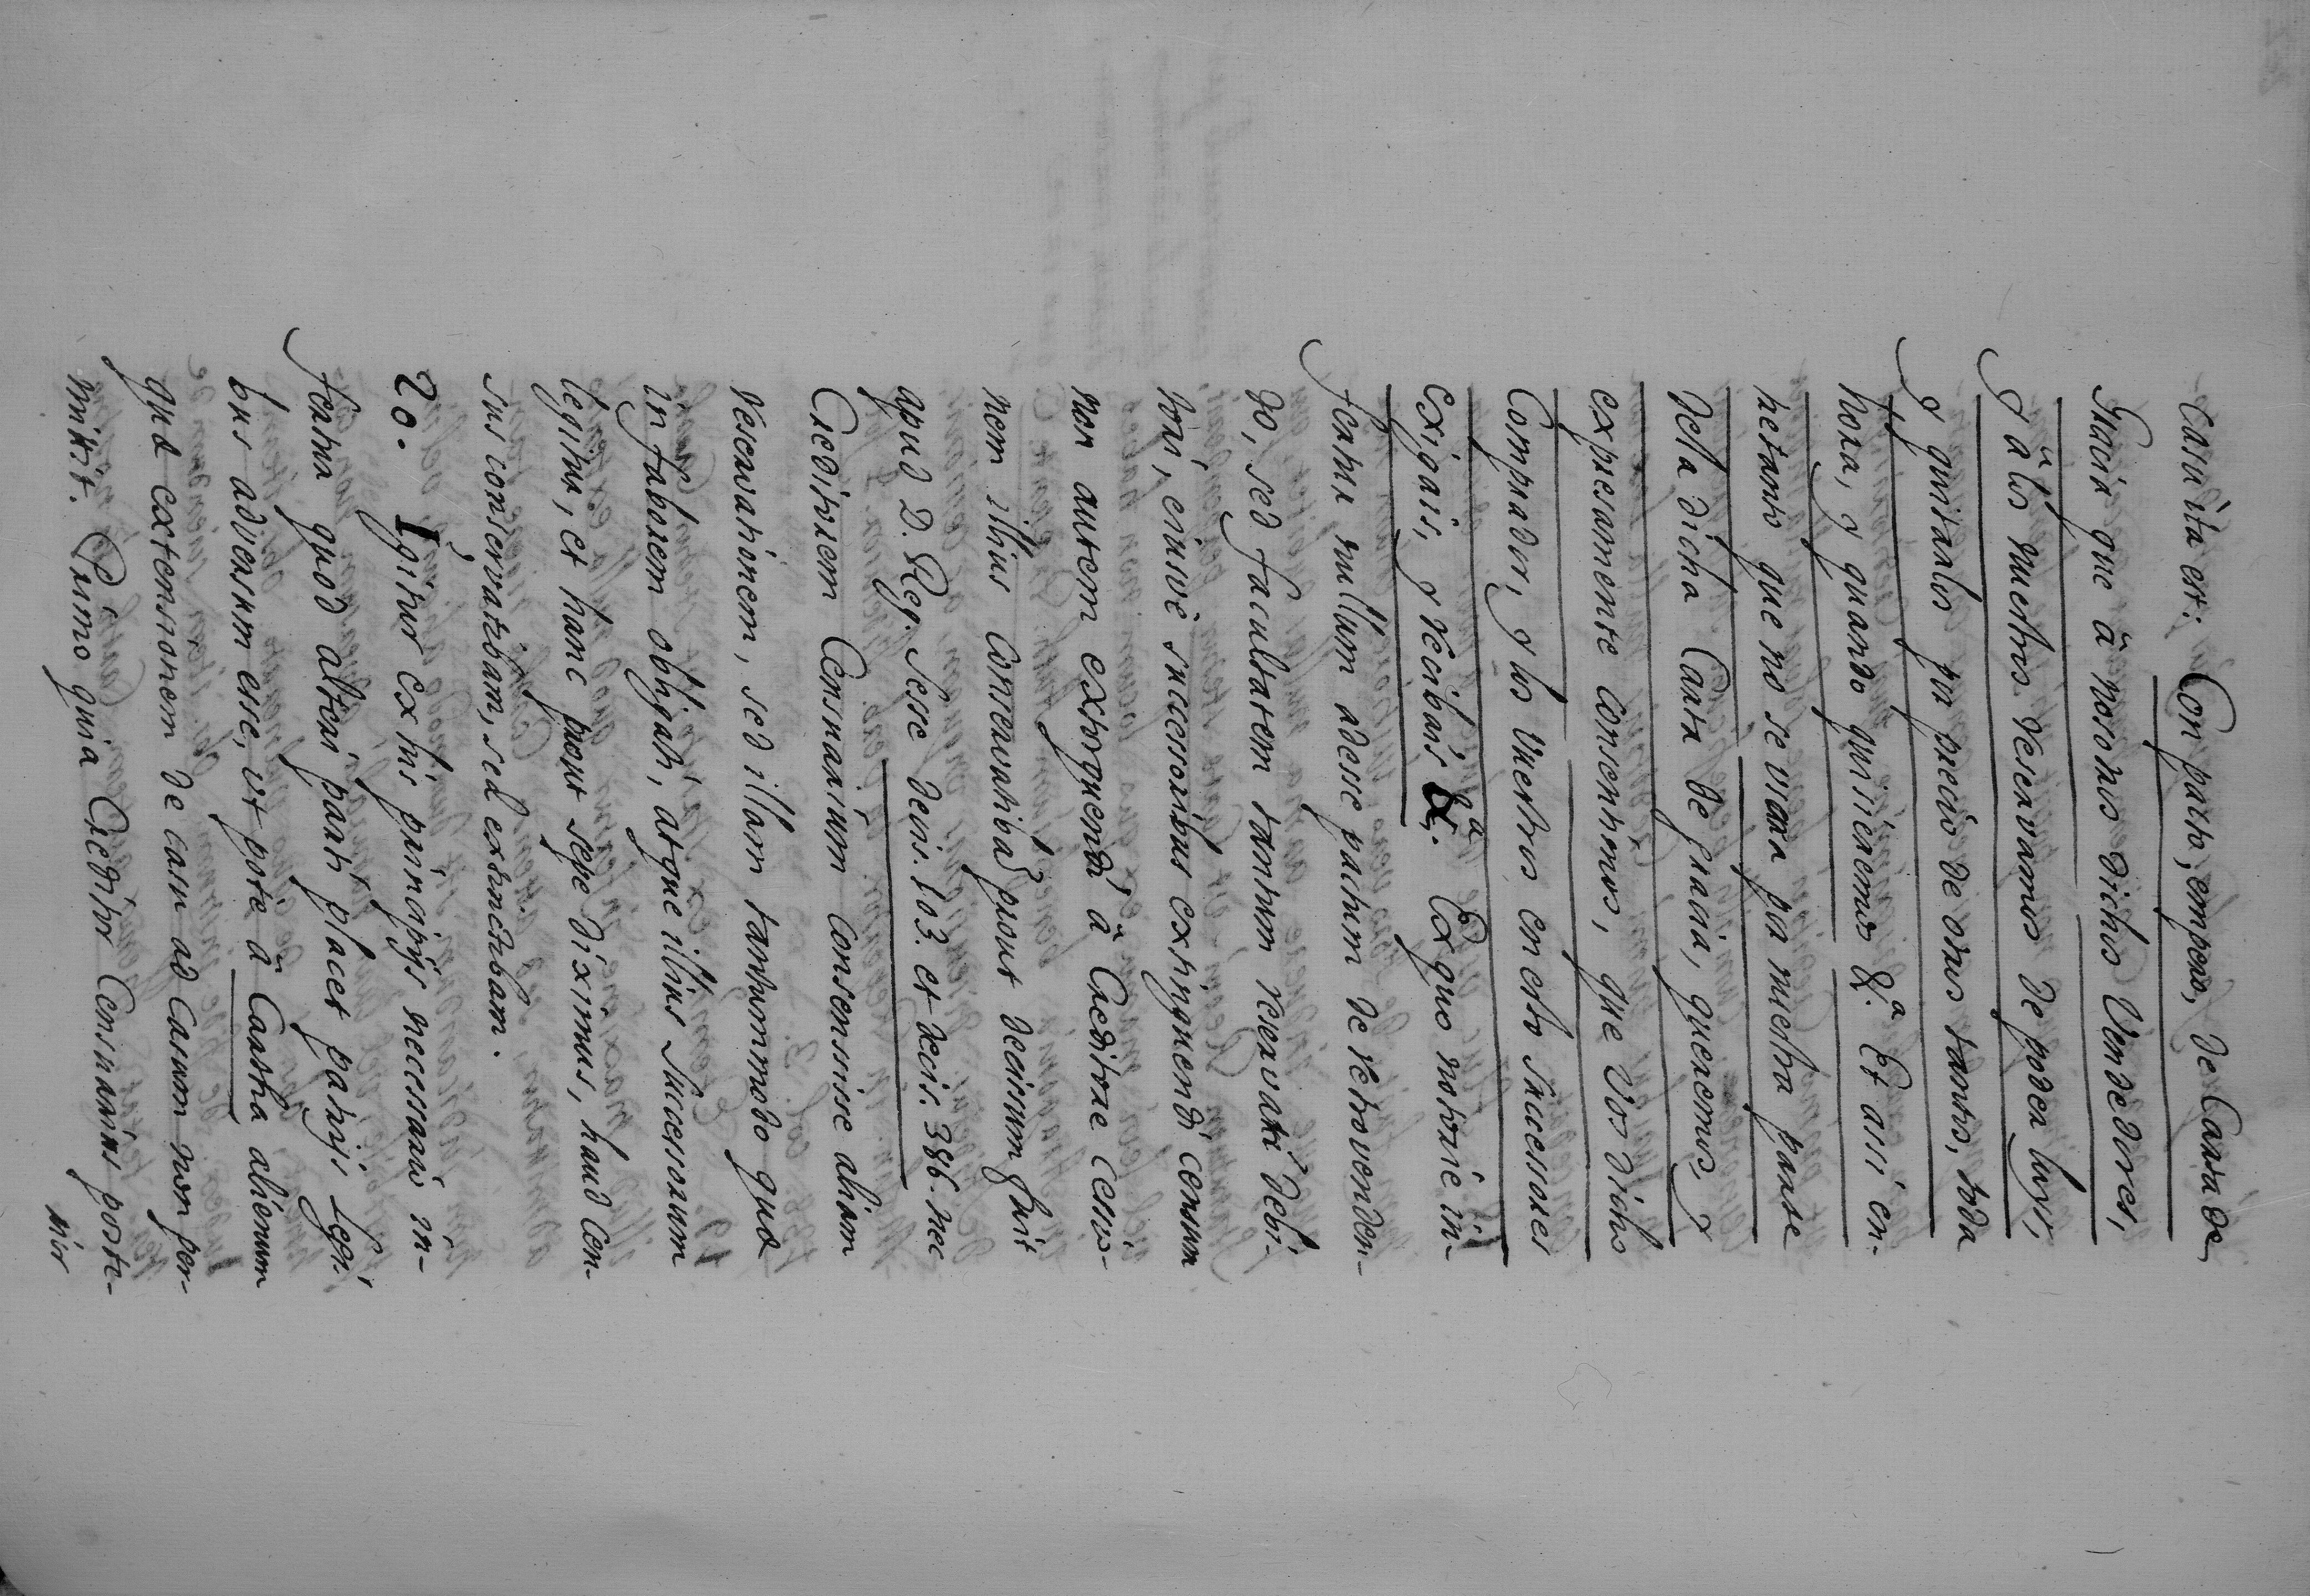 casu ita est. Con pacto, empero, de Carta de
Gracia que â nosotros dichos Vendedores,
y â los nuestros reservamos de poder luyr,
y quitarlos por precio de otros tantos, toda
hora, y quando quisieremos &ª. Et assi en-
retanto que no se vsara por nuestra parte
della dicha Carta de gracia, queremos, y
expresamente consentimos, que Vos dicho
Comprador, y los Vuestros en esto successores
exigais, y recibais &ª. Ex quo notorie in-
fertur nullum adesse pactum de retrovenden-
do, sed facultatem tantum reservati debi-
tori, eiusvè successoribus extinguendi censum
non autem extorquendi â Creditore cessio-
nem illius conservatibã prout decisum fuit
apud D. Reg. Sesse decis. 103. et decis. 386. nec
Creditorem Censuarium consensisse aliam
reservationem, sed illam tantummodo qua
in faborem obligati, atque illius Successorum
legitur, et hanc prout sepe diximus, haud cen-
sus conservatibam, sed extinctibam.
20. Igitur ex his principijs necessario in-
fertur quod alteri parti placet pactis legi-
bus adversum esse, ut pote â Castra alienum
qua extensionem de casu ad casum non per-
mittit. Primo quia Creditor Censuarius poste-
rior